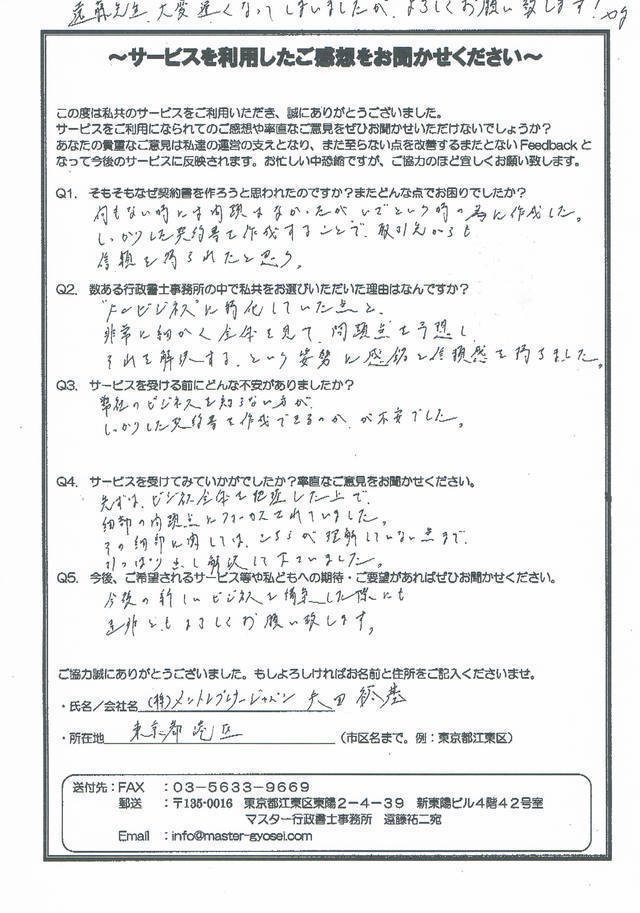 遠藤先生、大変遅くなってしまいましたが、よろしくお願い致します!
～サービスを利用したご感想をお聞かせください～
この度は私共のサービスをご利用いただき、誠にありがとうございました。
サービスをご利用になられてのご感想や率直なご意見をぜひお聞かせいただけないでしょうか?
あなたの貴重なご意見は私達の運営の支えとなり、また至らない点を改善するまたとない Feedback と
なって今後のサービスに反映されます。お忙しい中恐縮ですが、ご協力のほど宜しくお願い致します。
Q1. そもそもなぜ契約書を作ろうと思われたのですか?またどんな点でお困りでしたか?
何もない時には問題はなかったが、いざという時の為に作成した。
しっかりした契約書を作成することで、取引先からも
信頼を得られたと思う。
Q2. 数ある行政書士事務所の中で私共をお選びいただいた理由はなんですか?
ビジネス"に特化していた点と、
非常に細かく全体を見て、問題点を予想し
それを解決する、という姿勢に感銘と信頼感を得ました。
Q3. サービスを受ける前にどんな不安がありましたか?
弊社のビジネスを知らない方が、
しっかりした契約書を作成できるのか、が不安でした。
Q4. サービスを受けてみていかがでしたか?率直なご意見をお聞かせください。
先ずは、ビジネス全体を把握した上で、
細部の問題点にフォーカスされていました。
その細部に関しては、こちらが理解していない点まで、
引っぱり出し解決して下さいました。
Q5. 今後、ご希望されるサービス等や私どもへの期待・ご要望があればぜひお聞かせください。
今後の新しいビジネスを構築した際にも
是非ともよろしくお願い致します。
ご協力誠にありがとうございました。もしよろしければお名前と住所をご記入くださいませ。
・氏名/会社名 (株)メントレグレータージャパン 矢田
・所在地 東京都港区 (市区名まで。例:東京都江東区)
送付先:FAX :03-5633-9669
郵送 :〒135-0016 東京都江東区東陽2-4-39 新東陽ビル4階42号室
マスター行政書士事務所 遠藤祐二宛
Email :info@master-gyosei.com